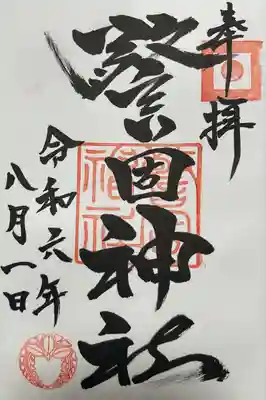 奉拝
警固神社
令和六年
八月一日